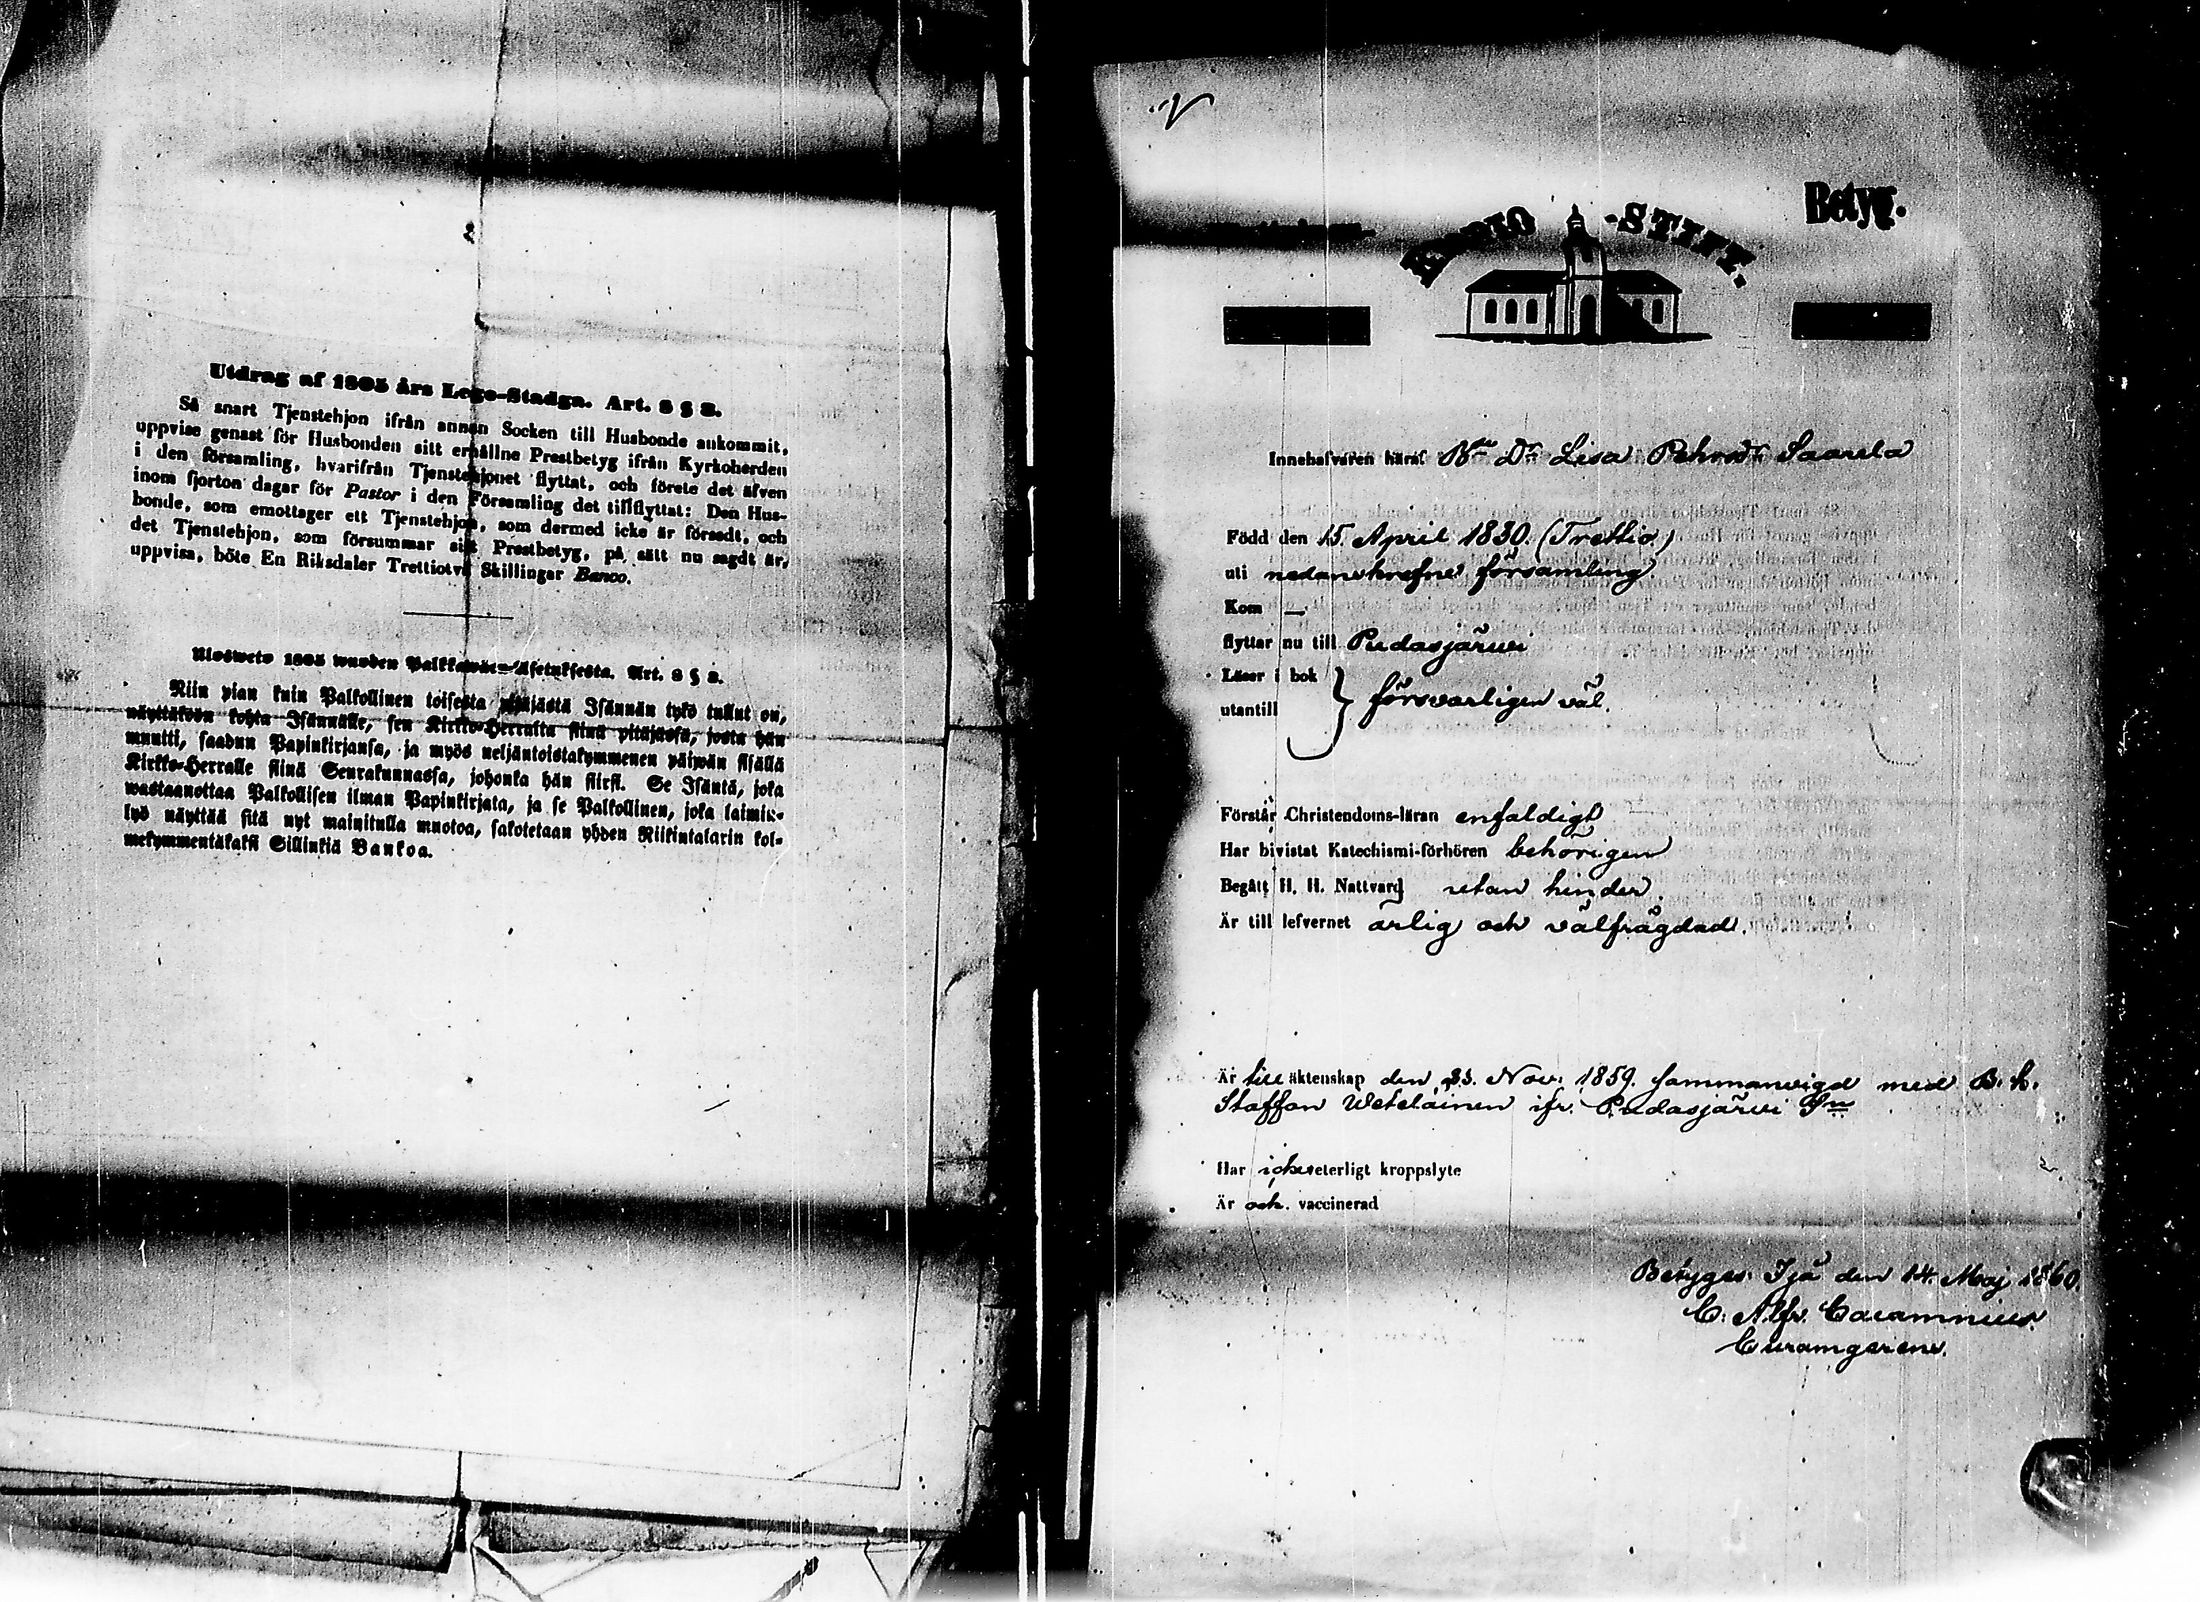 Utdrag af 1805 års Lego-Stadga. Art. 8 § 8.
Så snart Tjenstehjon ifrån annan Socken till Husbonde ankommit,
uppvise genast för Husbonden sitt erhållne Prestbetyg ifrån Kyrkoherden
i den församling, hvarifrån Tjenstehjonet flyttat, och förete det äfven
inom fjorton dagar för Pastor i den Församling det tillflyttat: Den Hus-
bonde, som emottager ett Tjenstehjon, som dermed icke är försedt, och
det Tjenstehjon, som försummar sitt Prestbetyg, på sätt nu sagdt är,
uppvisa, böte En Riksdaler Trettiotvå Skillingar Banco.
Uloswето 1805 wuoden Palkkawäen-Asetuksesta. Art. 8 § 8.
Niin pian kuin Palkollinen toisesta pitäjästä Isännän tykö tullut on,
näyttäköön kohta Isännälle, sen Kirkko-Herralta siinä pitäjässä, josta hän
muutti, saadun Papinkirjansa, ja myös neljäntoistakymmenen päiwän sisällä
Kirkko-Herralle siinä Seurakunnassa, johonka hän siirsi. Se Isäntä, joka
wastaanottaa Palkollisen ilman Papinkirjata, ja se Palkollinen, joka laimin-
lyö näyttää sitä nyt mainitulla muotoa, sakotetaan yhden Riikintalarin kol-
mekymmentäkaksi Sillinkiä Bankoa.
Betyg.
KUOPIO -STIFT.
Innehafvaren häraf Bde Dr Lisa Pehrsdr Saarela
Född den 15. April 1830. (Trettio)
uti nedanskrefne församling.
Kom —
flyttar nu till Pudasjärwi
Läser i bok
utantill } försvarligen väl.
Förstår Christendoms-läran enfaldigt
Har bivistat Katechismi-förhören behörigen
Begått H. H. Nattvard utan hinder.
Är till lefvernet ärlig och välfrägdad.
Är till äktenskap den Nov. 1859. sammanvigd med B. k.
Staffan Wetelainen ifr. Pudasjärwi Sn
Har icke veterligt kroppslyte
Är och. vaccinerad
Betygar Ijå den 14. Maj 1860.
C. Alfr. Cajamnius.
Curamgerens.